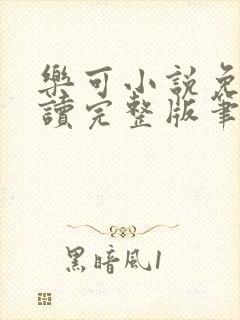 樂可小說免
讀完整版筆
黑暗風1